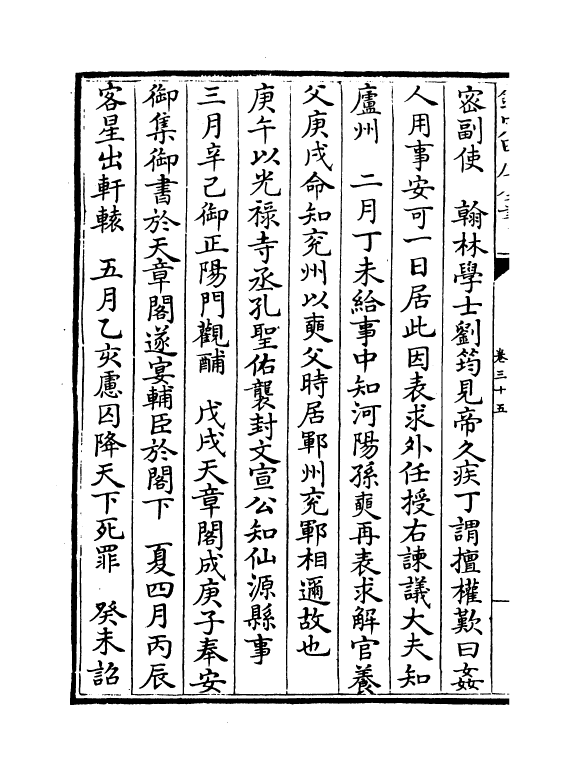 卷三十五
密副使　翰林學士劉筠見帝久疾丁謂擅權歎曰姦
人用事安可一日居此因表求外任授右諫議大夫知
廬州　二月丁未給事中知河陽孫奭再表求解官養
父庚戌命知兖州以奭父時居鄆州兖鄆相邇故也
庚午以光禄寺丞孔聖佑襲封文宣公知仙源縣事
三月辛己御正陽門觀酺　戊戌天章閣成庚子奉安
御集御書於天章閣遂宴輔臣於閣下　夏四月丙辰
客星出軒轅　五月乙亥慮囚降天下死罪　癸未詔